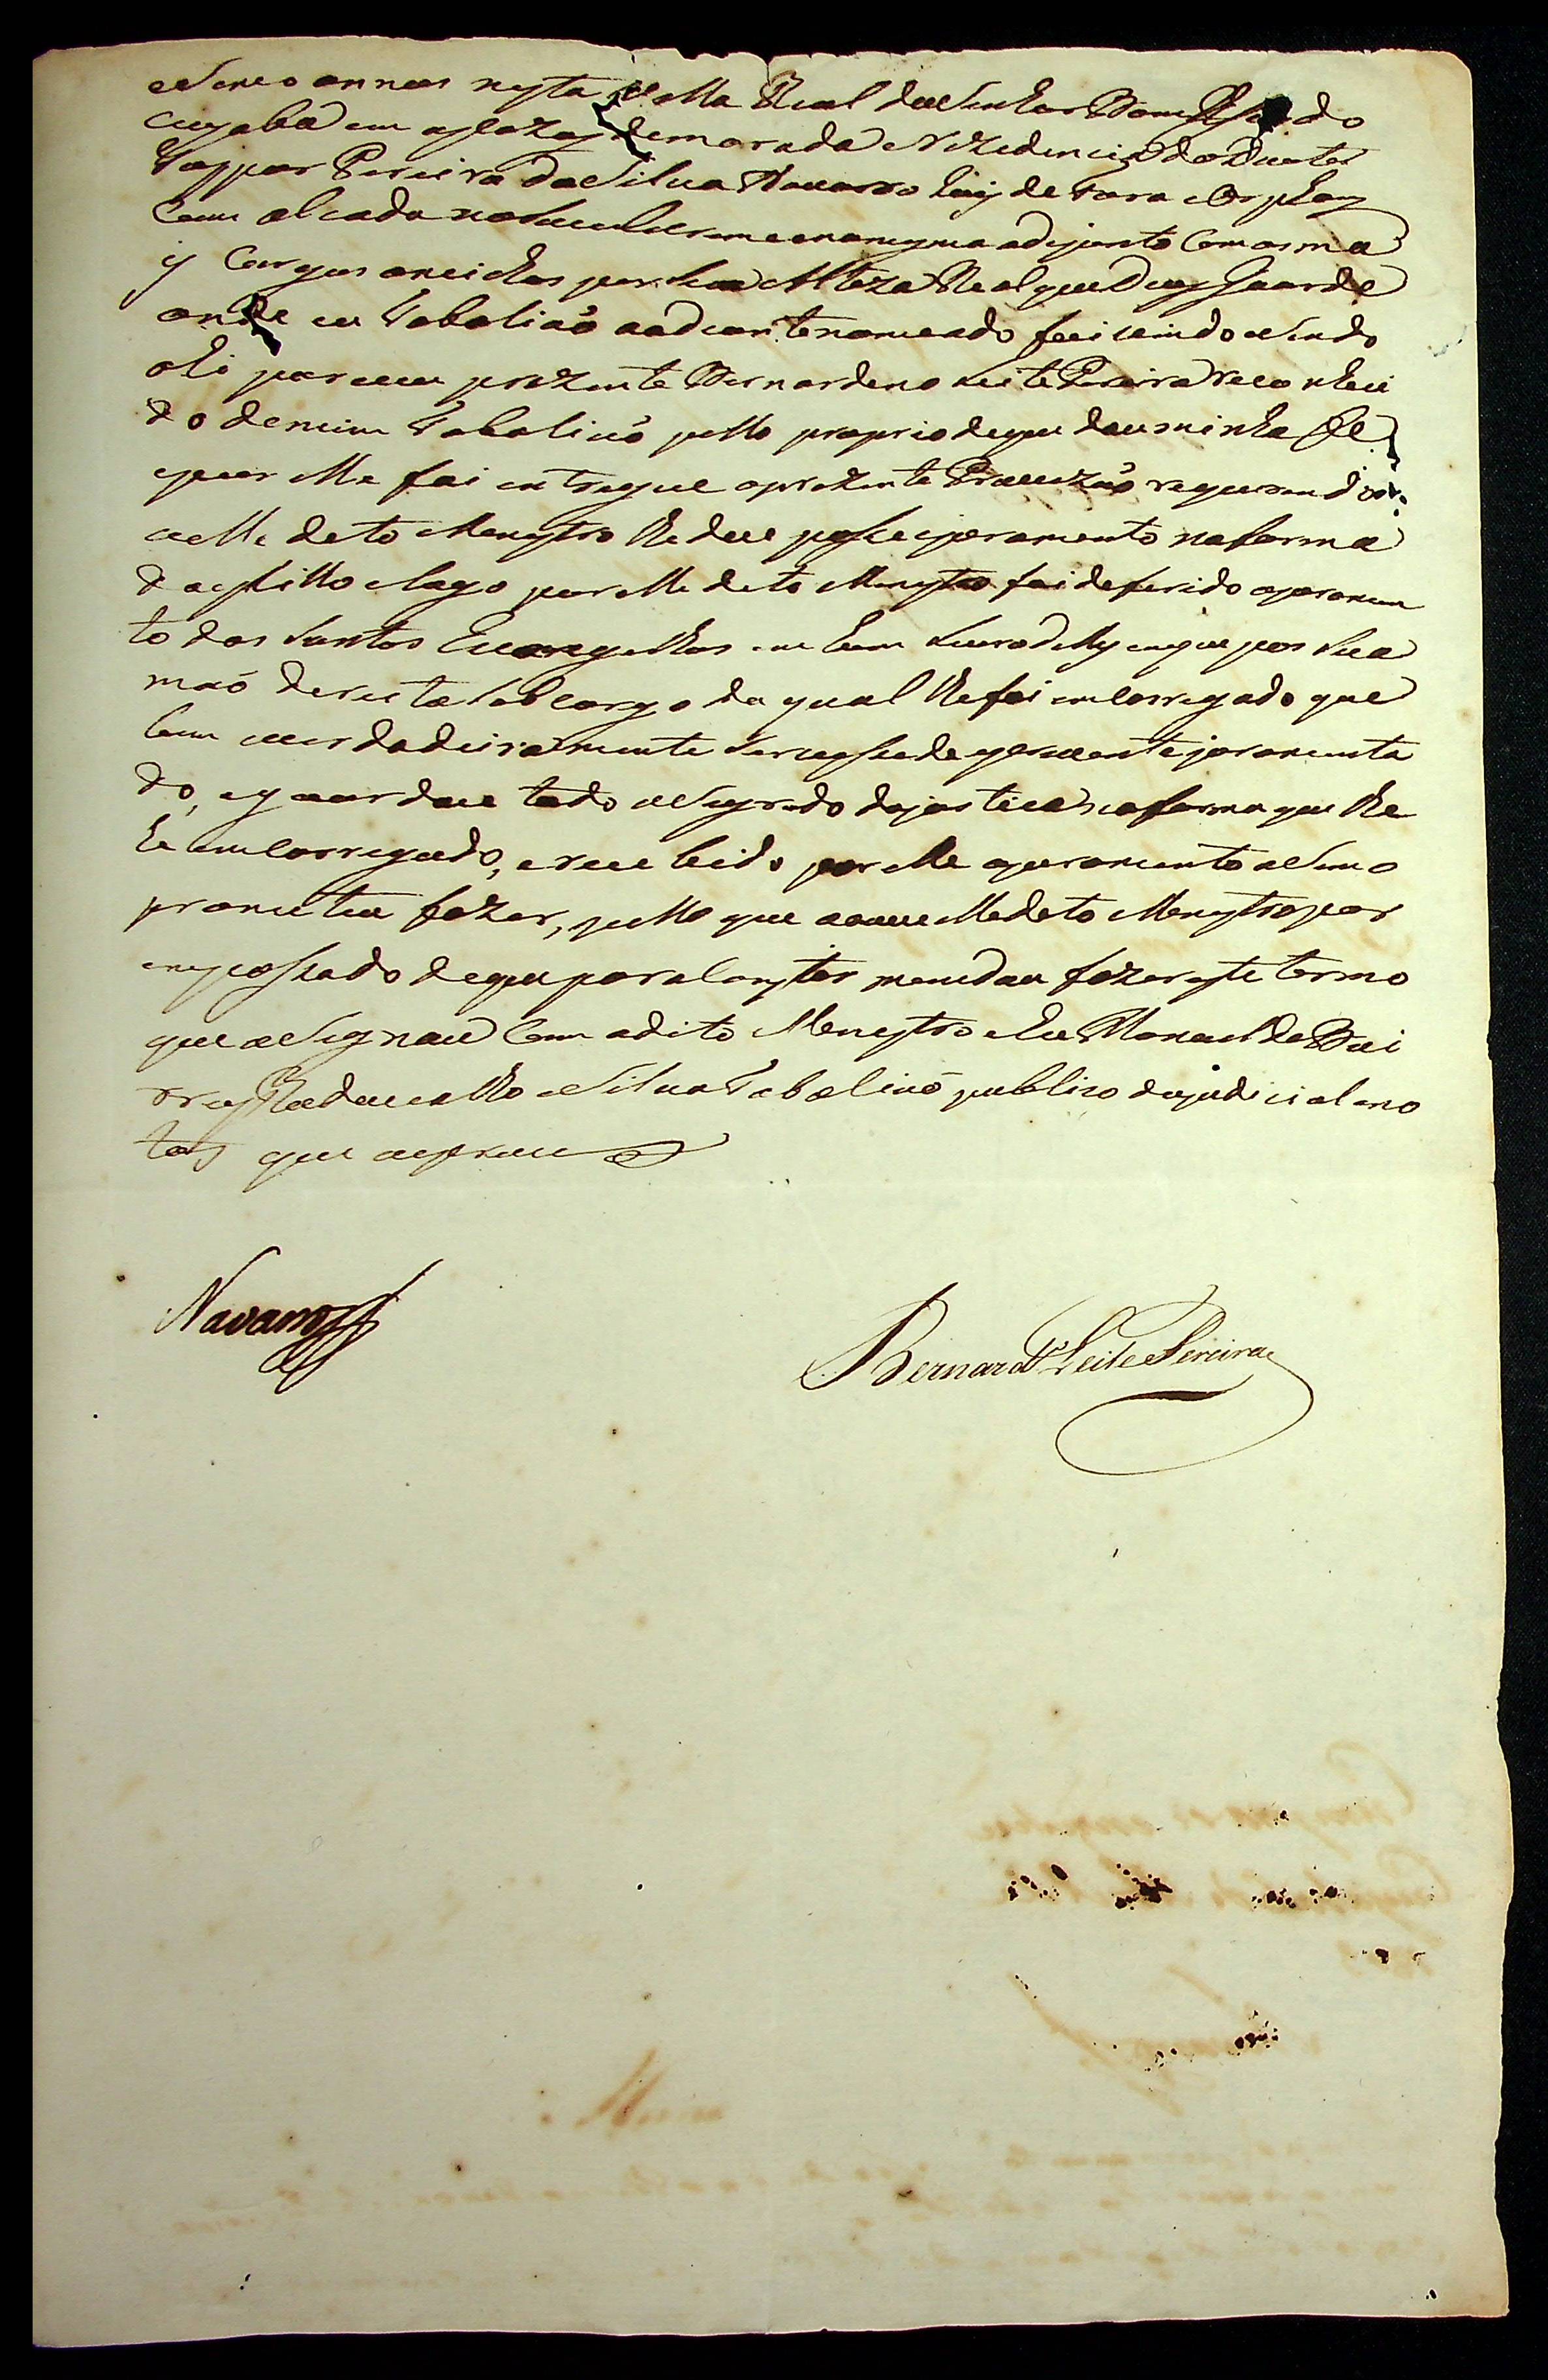 eSinco annos nesta Villa Real do Senhor Bom Jesus do
Cuyabá em as cazas de morada e Rezidencia do Doutor
Gaspar Pereira da Silua Nauarro Juis de Fora e Orphaos
Com alcada no Siuel e crime e na mesma adejunto Com as ma
is Cargos aneichos por Sua Alteza Real que Deus Guarde
onde eu Tabaliaõ ao diante nomeado fui uindo e Sendo
ahi pareceu prezente Bernardino Leite Pereira reconheci
do de mim Tabaliaõ pello proprio de que dou minha fé
e por elle foi entregue a prezente Prouizaõ requerendo
a elle dito Menystro lhe dece posse e juramento na forma
do estillo e logo por elle dito Menystro foi deferido o juramen
to dos Santos Euangelhos em hum Liuro delles em que pos Sua
maõ dereita Sob cargo do qual lhe foi emcarregado que
bem e uerdadeiramente Seruisse de escreuente juramenta
do, e guardace todo o Segredo da justica na forma que lhe
he emcarregado, e recebido por elle o juramento aSim o
prometeu fazer, pello que ouue elle dito Menystro por
empossado de que para Constar mandou fazer este termo
que aSignou Com o dito Menystro e eu Manoel de Bai
rros Tabaliaõ publico do judicial e no
tas que escreui
Navarro
Bernardo Leite Pereira